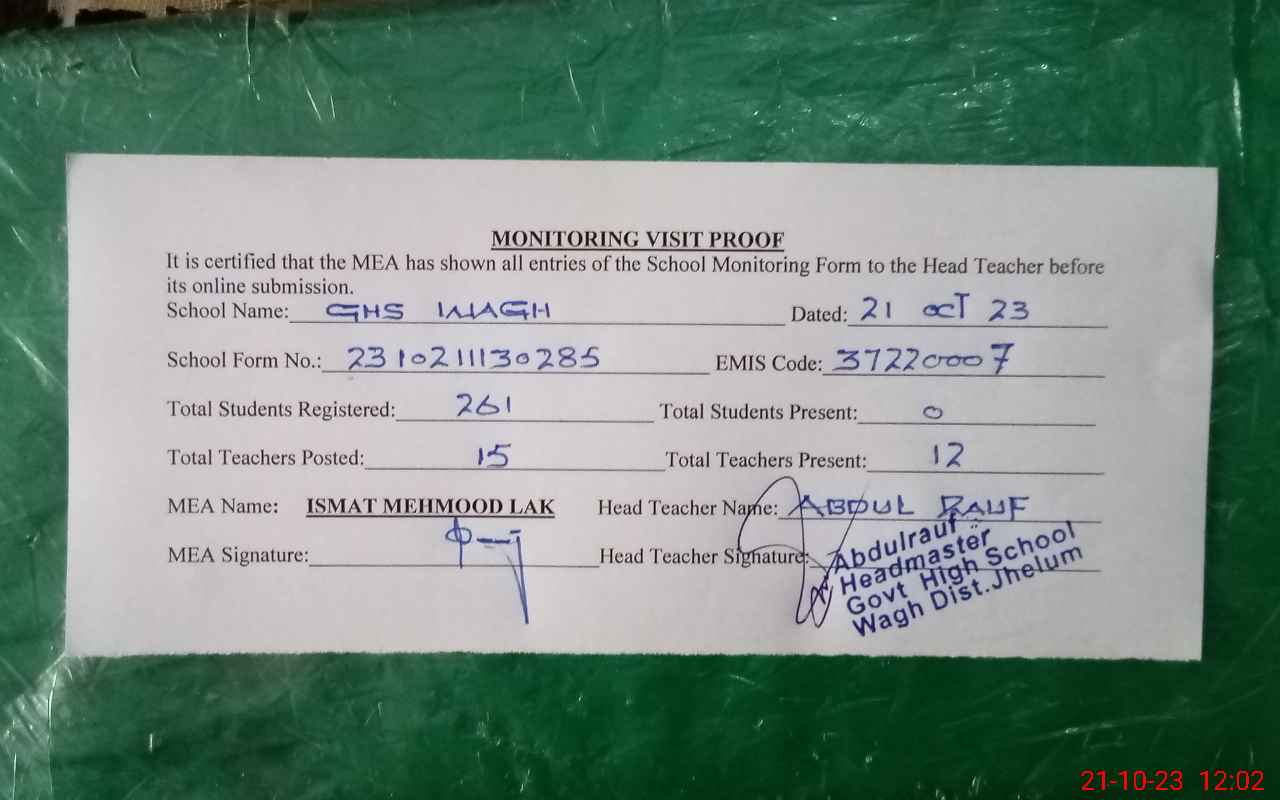 MONITORING VISIT PROOF
It is certified that the MEA has shown all entries of the School Monitoring Form to the Head Teacher before
its online submission.
School Name: GHS WAGH Dated: 21 OCT 23
School Form No.: 2310211130285 EMIS Code: 37220007
Total Students Registered: 261 Total Students Present: 0
Total Teachers Posted: 15 Total Teachers Present: 12
MEA Name: ISMAT MEHMOOD LAK Head Teacher Name: ABDUL RAUF
MEA Signature: Head Teacher Signature:
Abdulrauf
Headmaster
Govt High School
Wagh Dist.Jhelum
21-10-23 12:02